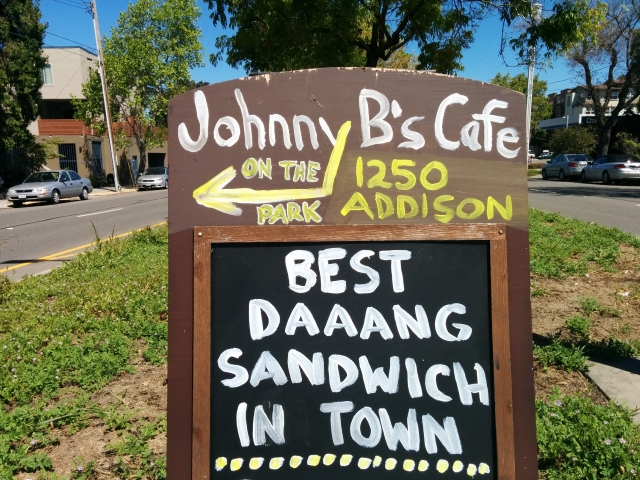 Johnny B's Cafe
ON THE
PARK
1250
ADDISON
BEST
DAAANG
SANDWICH
IN TOWN